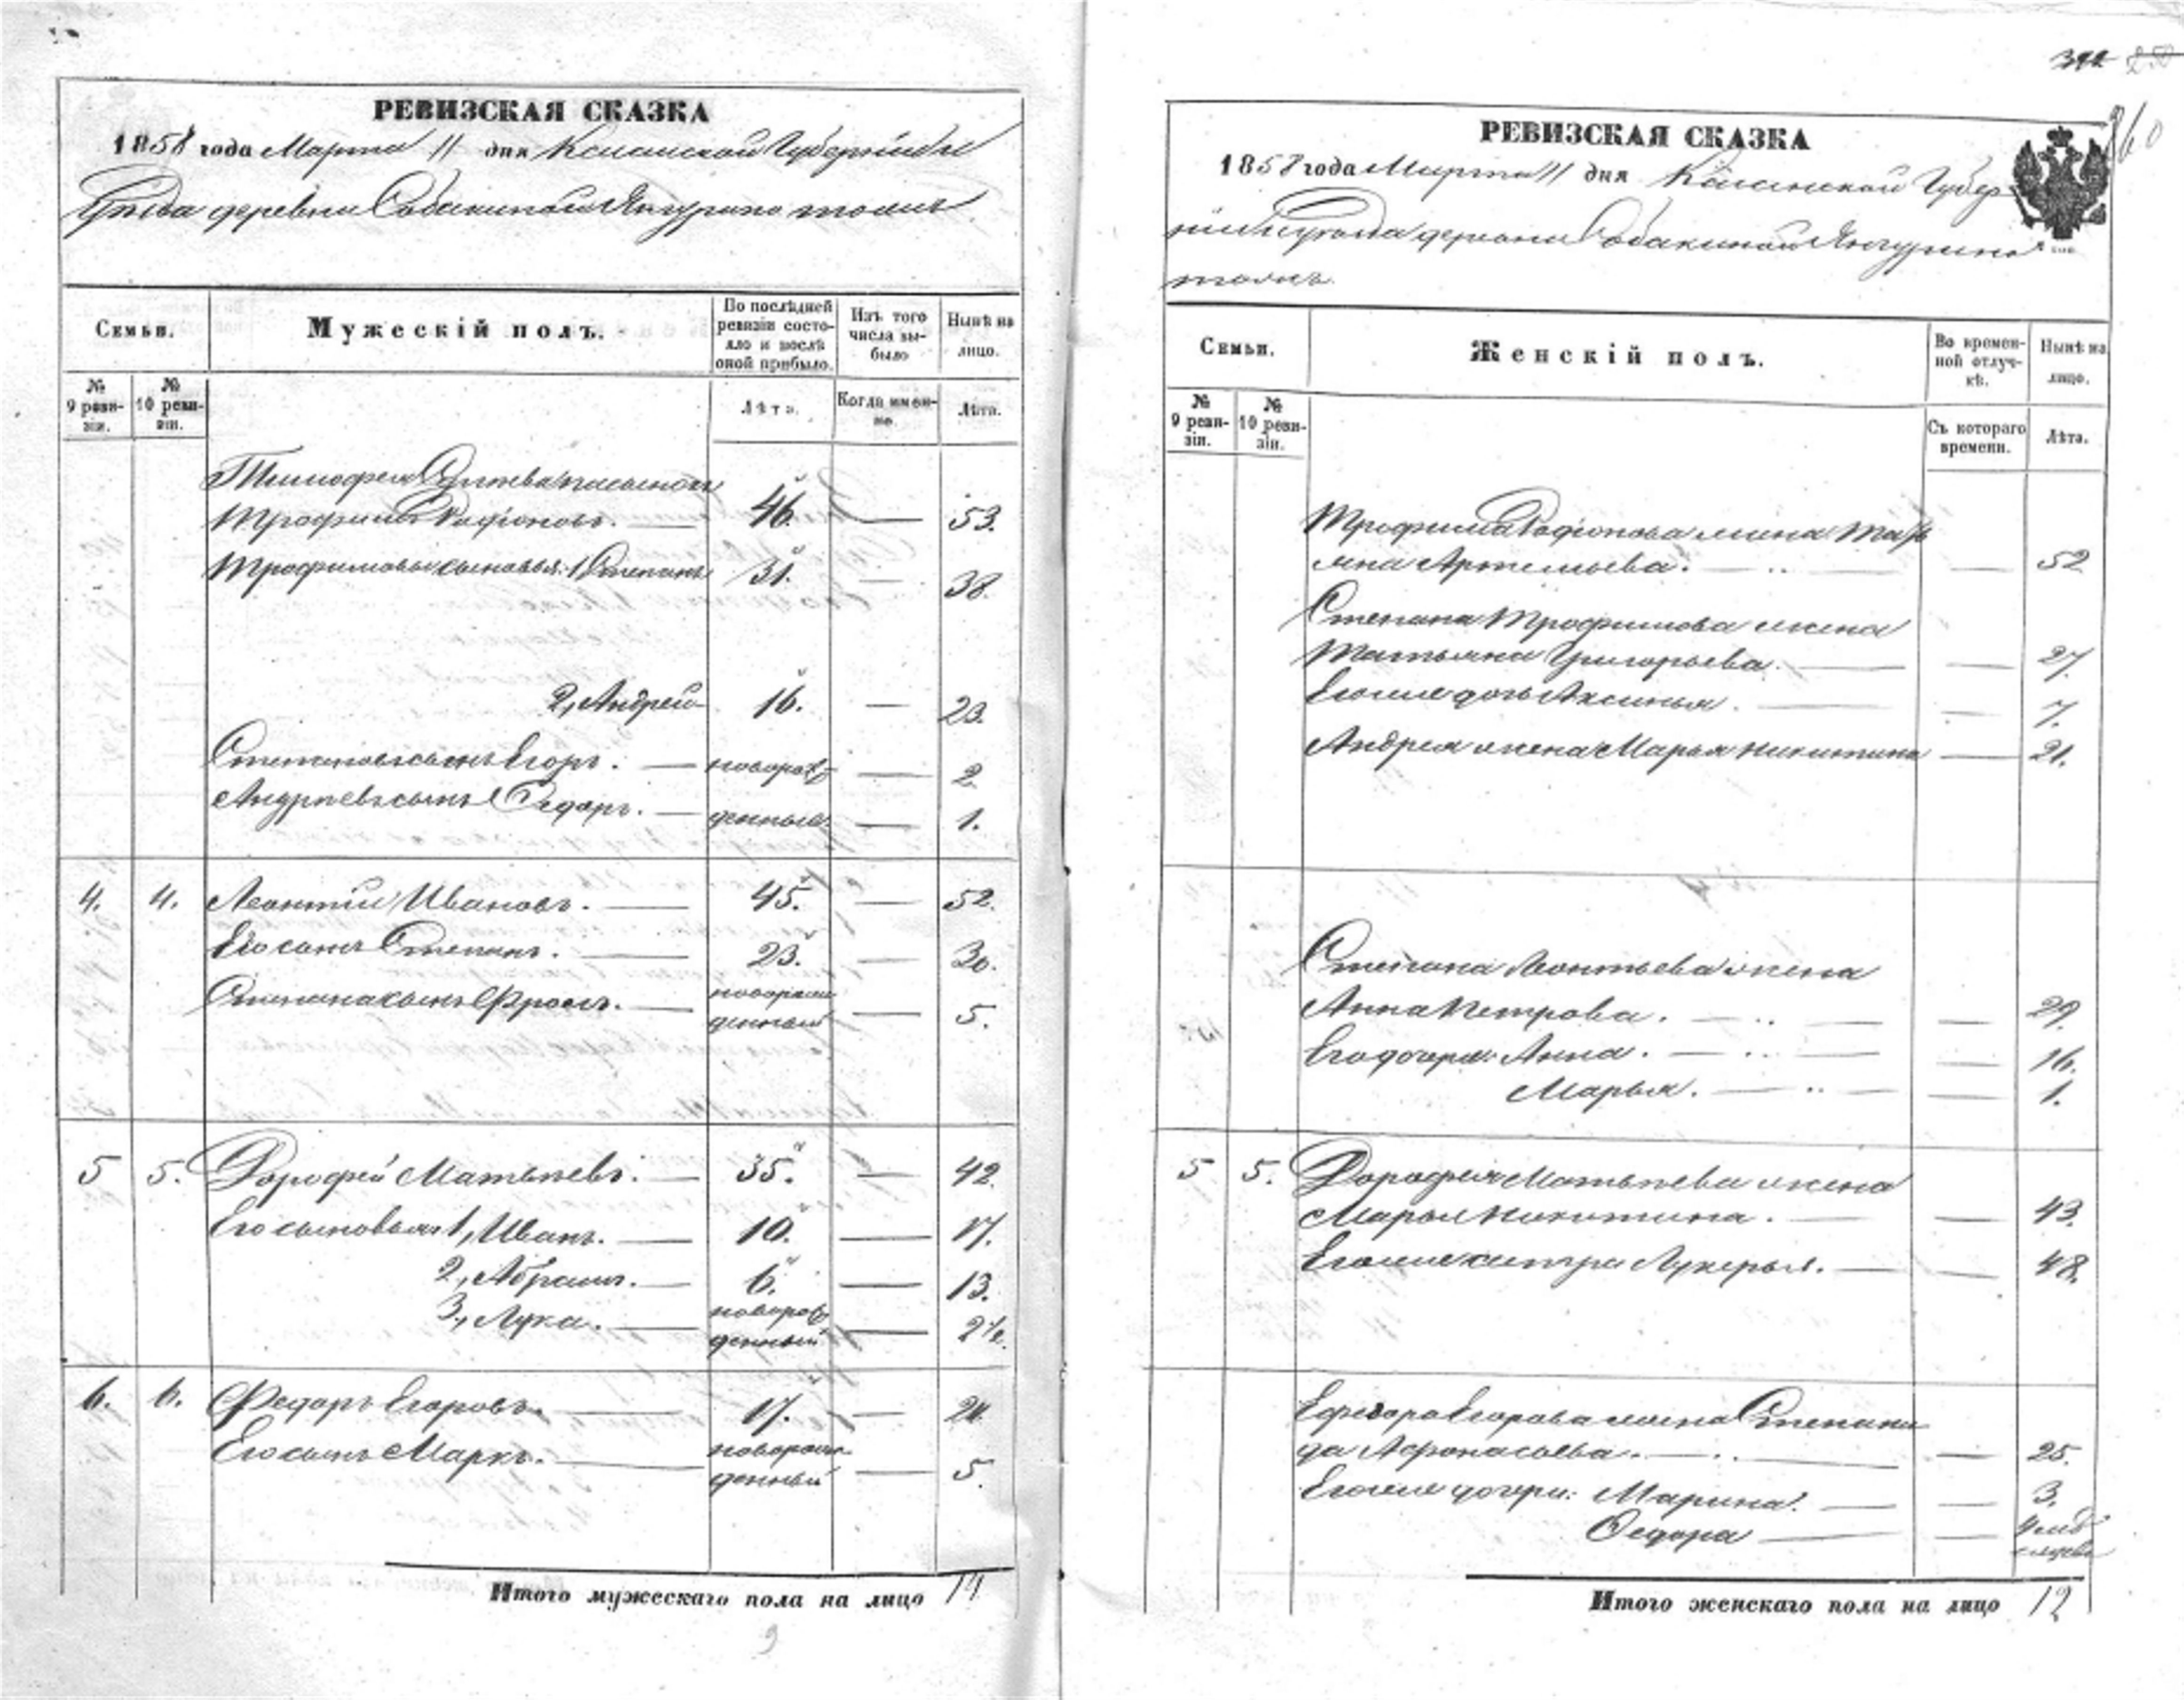 РЕВИЗСКАЯ СКАЗКА
1858 года Марта 11 дня Казанской Губерніи
Уѣзда деревни Собакиной Янгурино тожъ
Семьи.
Мужескій полъ.
По послѣдней ревизіи состояло и послѣ оной прибыло.
Изъ того числа выбыло
Нынѣ на лицо.
№ 9 ревизіи.
№ 10 ревизіи.
Лѣта.
Когда именно.
Лѣта.
Тимофея пасынокъ
Трофимъ Родіоновъ. 46. 53.
Трофимовы сыновья: 1, Степанъ 31. 38.
2, Андрей 16. 23.
Степановъ сынъ Егоръ. новорож- 2.
Андреевъ сынъ Ѳедоръ. денные 1.
4. 4. Леонтій Ивановъ. 45. 52.
Его сынъ Степанъ. 23. 30.
Степана сынъ Фролъ. новорож
денный 5.
5 5. Дорофей Матвѣевъ. 35. 42.
Его сыновья 1, Иванъ. 10. 17.
2, Абрамъ. 6. 13.
3, Лука. новорож
денный 2½.
6. 6. Федоръ Егоровъ. 17. 24.
Его сынъ Маркъ. новорож
денный 5.
Итого мужескаго пола на лицо 14
9
392 250
360
РЕВИЗСКАЯ СКАЗКА
1858 года Марта 11 дня Казанской Губер-
ніи Уѣзда деревни Собакиной Янгурино
тожъ.
Семьи.
Женскій полъ.
Во временной отлучкѣ.
Нынѣ на лицо.
№ 9 ревизіи.
№ 10 ревизіи.
Съ котораго времени.
Лѣта.
Трофима Родіонова жена Марь
яна Артемьева. 52
Степана Трофимова жена
Татьяна Григорьева. 27.
Его же дочь Аксинья. 7.
Андрея жена Марья Никитина 21.
Степана Леонтьева жена
Анна Петрова. 29.
Его дочери: Анна. 16.
Марья. 1.
5 5. Дорофея Матвѣева жена
Марья Никитина. 43.
Его же сестра Лукерья. 48.
Ѳедора Егорова жена Степани
да Афонасьева. 25.
Его же дочери: Марина. 3.
Ѳедора
Итого женскаго пола на лицо 12